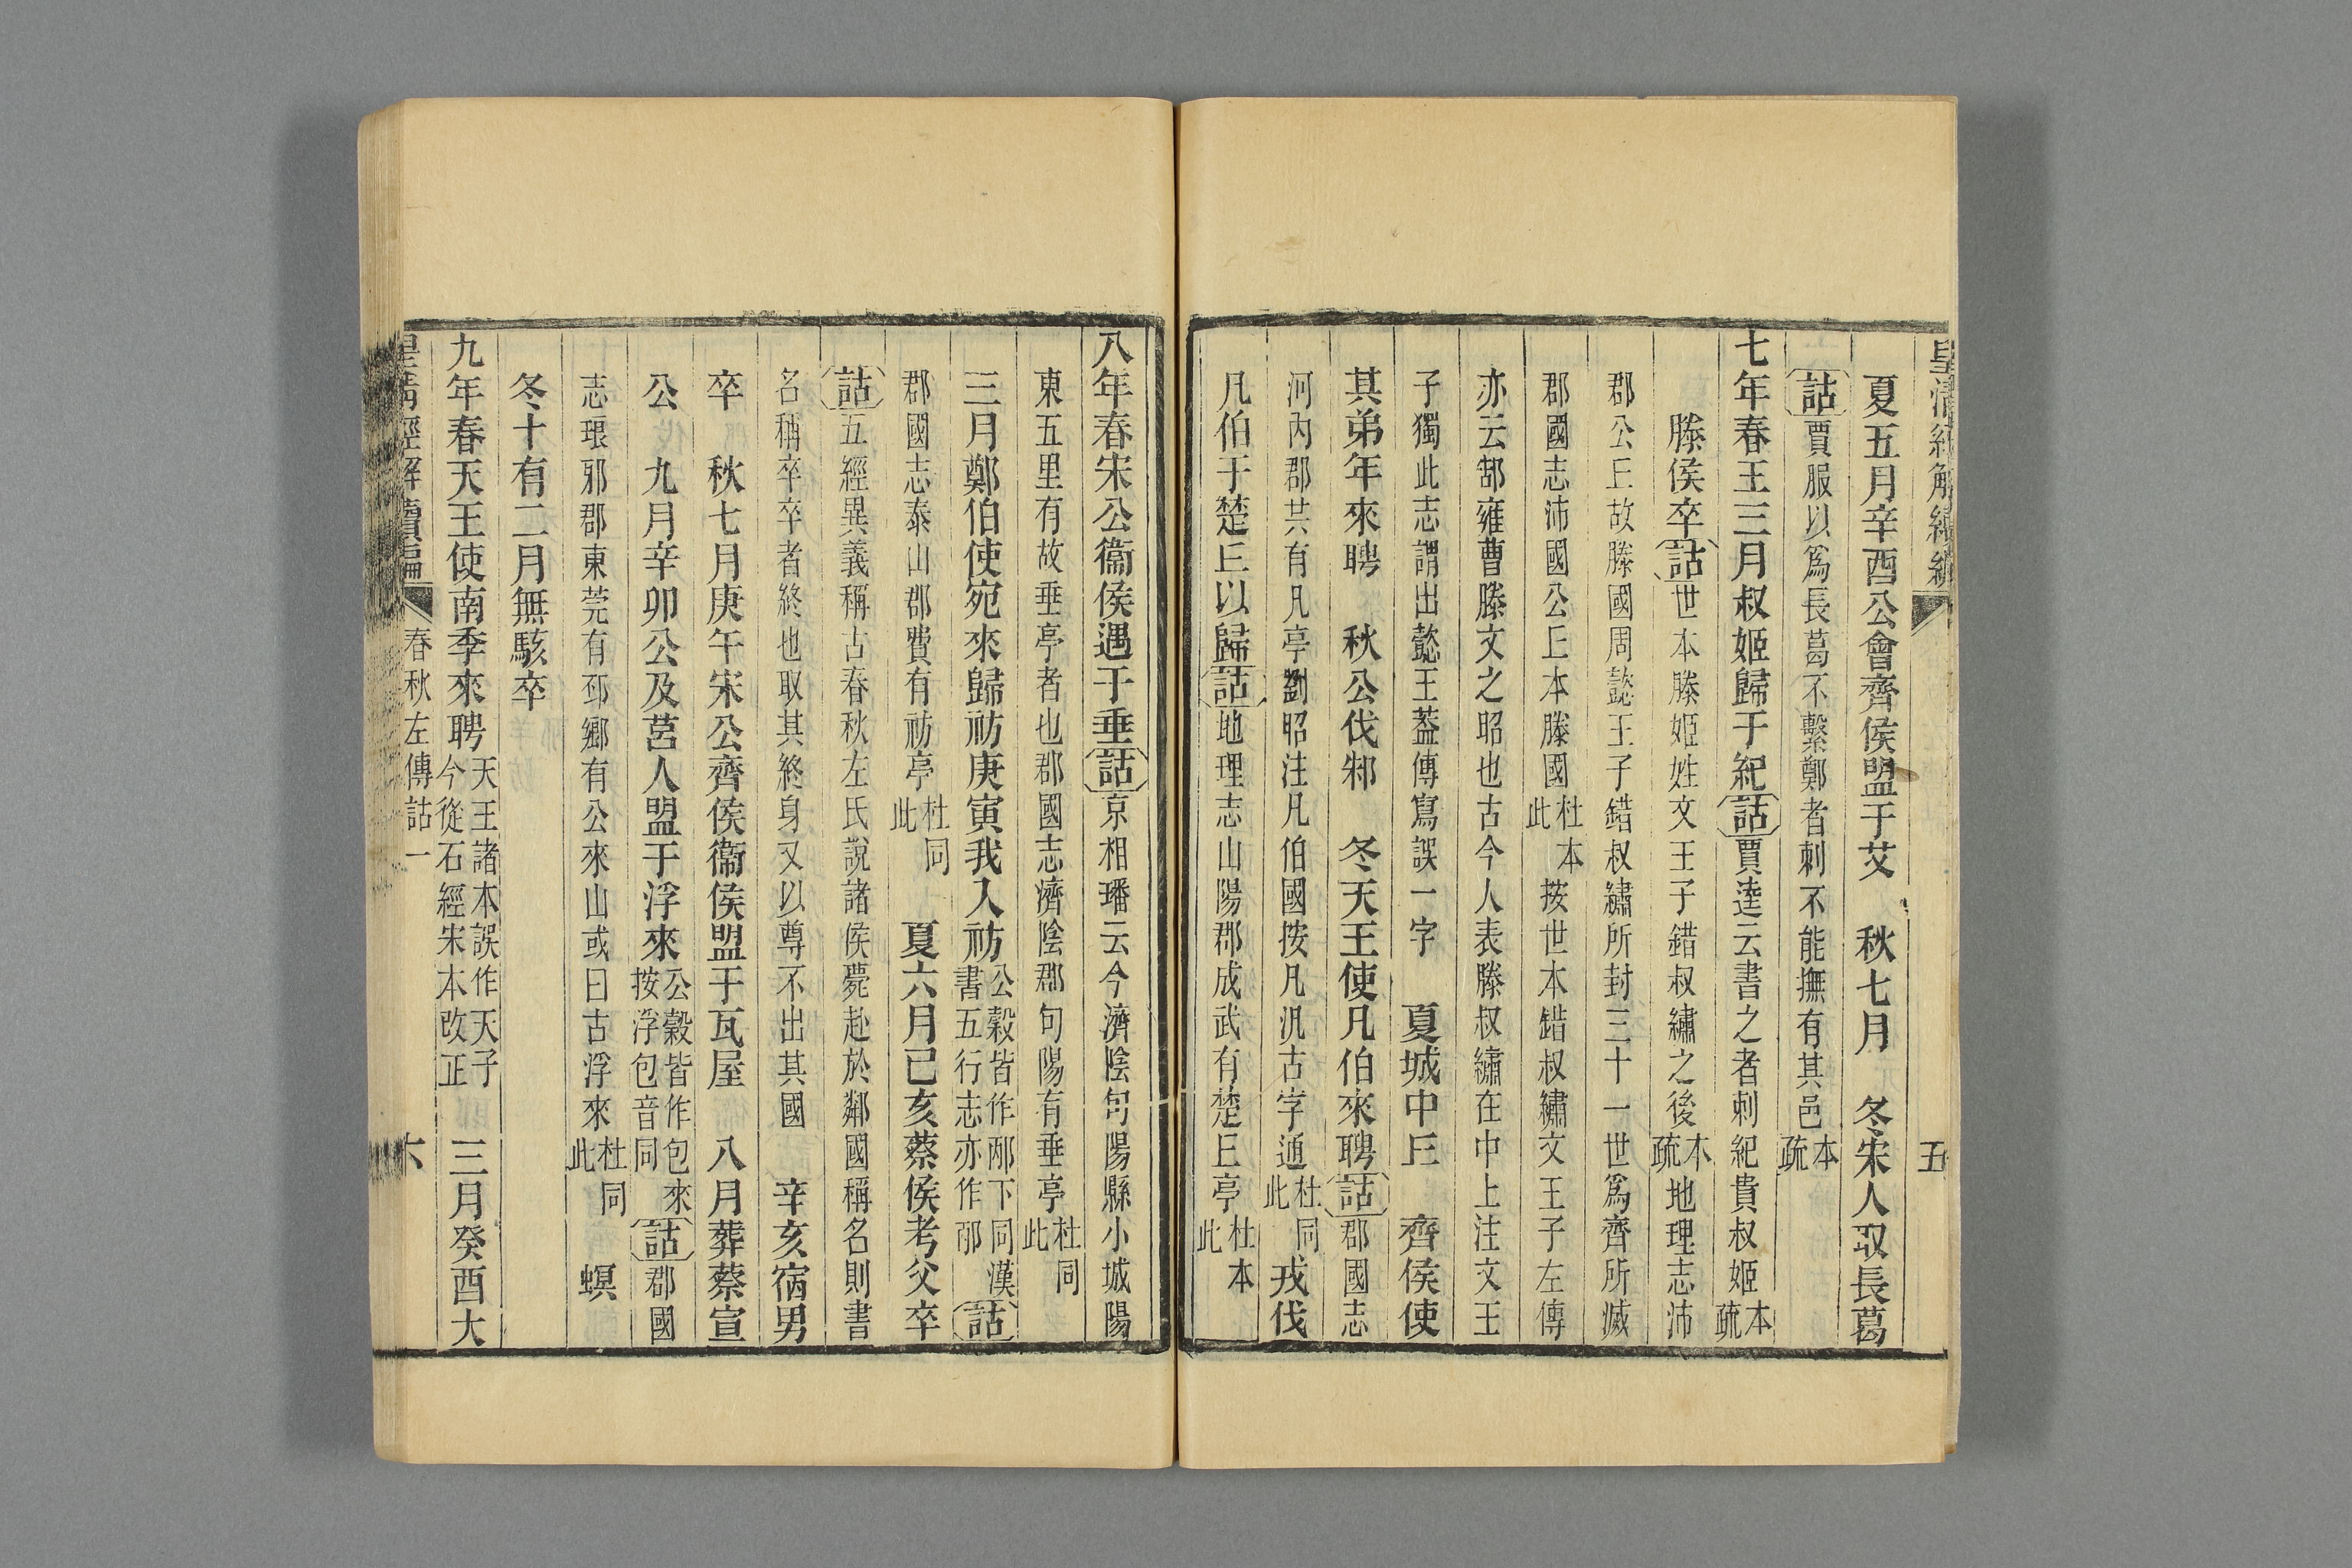 皇清經解續編
五
夏五月辛酉公會齊侯盟于艾　秋七月　冬宋人取長葛
詁賈服以爲長葛不繫鄭者刺不能撫有其邑本疏
七年春王三月叔姬歸于紀詁賈逵云書之者刺紀貴叔姬本疏
滕侯卒詁世本滕姬姓文王子錯叔繡之後本疏地理志沛
郡公丘故滕國周懿王子錯叔繡所封三十一世爲齊所滅
郡國志沛國公丘本滕國杜本此按世本錯叔繡文王子左傳
亦云郜雍曹滕文之昭也古今人表滕叔繡在中上注文王
子獨此志謂出懿王葢傳寫誤一字　夏城中丘　齊侯使
其弟年來聘　秋公伐邾　冬天王使凡伯來聘詁郡國志
河內郡共有凡亭劉昭注凡伯國按凡汎古字通杜同此戎伐
凡伯于楚丘以歸詁地理志山陽郡成武有楚丘亭杜本此
八年春宋公衞侯遇于垂詁京相璠云今濟陰句陽縣小城陽
東五里有故垂亭者也郡國志濟陰郡句陽有垂亭杜同此
三月鄭伯使宛來歸祊庚寅我入祊公穀皆作邴下同漢書五行志亦作邴詁
郡國志泰山郡費有祊亭杜同此　夏六月己亥蔡侯考父卒
詁五經異義稱古春秋左氏說諸侯薨赴於鄰國稱名則書
名稱卒卒者終也取其終身又以尊不出其國　辛亥宿男
卒　秋七月庚午宋公齊侯衞侯盟于瓦屋　八月葬蔡宣
公　九月辛卯公及莒人盟于浮來公穀皆作包來按浮包音同詁郡國
志琅邪郡東莞有邳鄉有公來山或曰古浮來杜同此　螟
冬十有二月無駭卒
九年春天王使南季來聘天王諸本誤作天子今從石經宋本改正　三月癸酉大
皇清經解續編
春秋左傳詁一
六